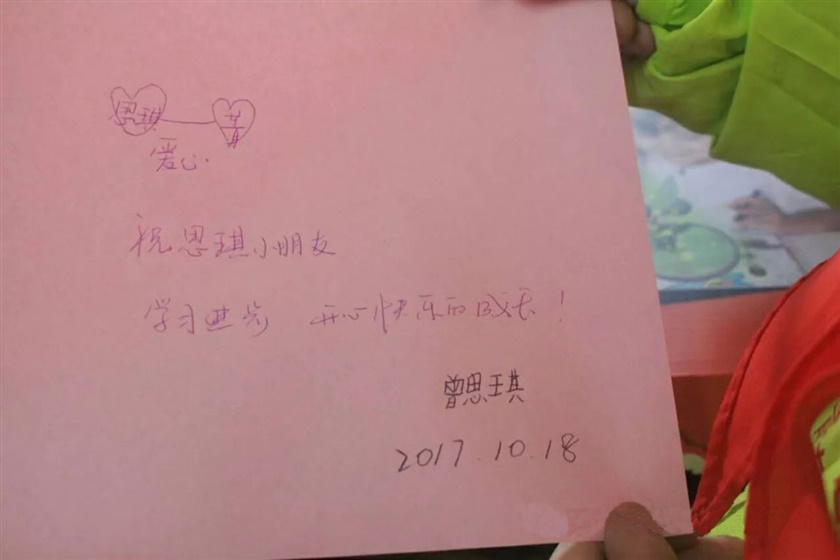 思琪 菁
爱心
祝思琪小朋友
学习进步 开心快乐的成长!
曾思琪
2017.10.18